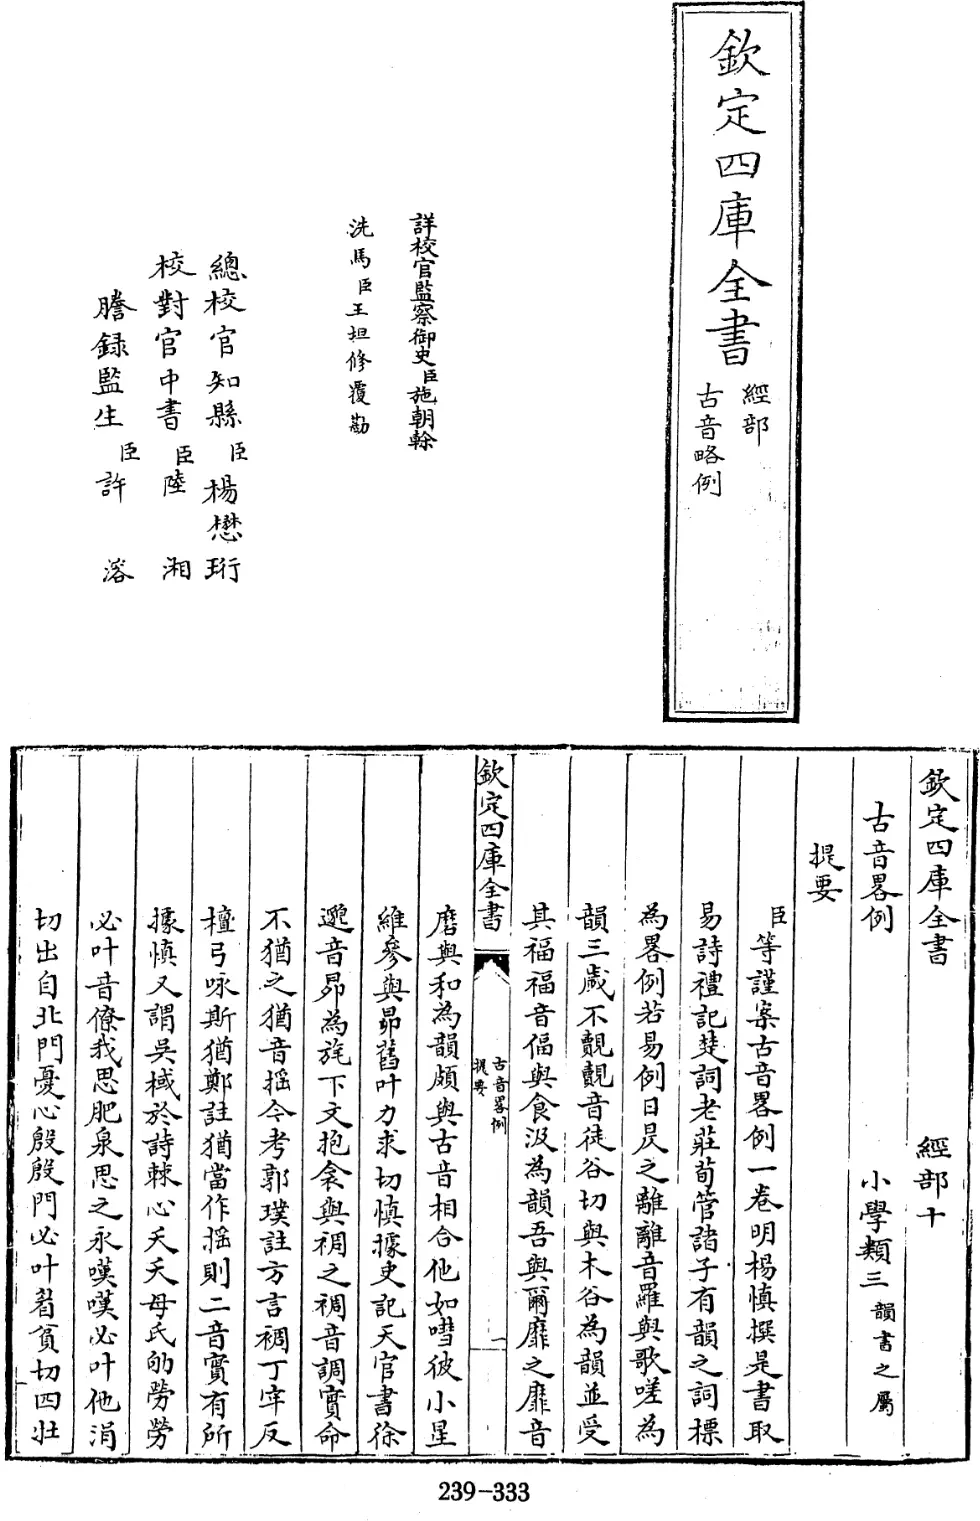 欽定四庫全書
經部
古音略例
詳校官監察御史臣施朝榦
洗馬臣王坦修覆勘
總校官知縣臣楊懋珩
校對官中書臣陸湘
謄錄監生臣許溶
欽定四庫全書 經部十
古音畧例 小學類三韻書之屬
提要
臣等謹案古音畧例一卷明楊慎撰是書取
易詩禮記楚詞老莊荀管諸子有韻之詞標
為畧例若易例日昃之離離音羅與歌嗟為
韻三歲不覿覿音徒谷切與木谷為韻並受
其福福音偪與食汲為韻吾與爾靡之靡音
欽定四庫全書
古音畧例
提要
一
磨與和為韻頗與古音相合他如嘒彼小星
維參與昴舊叶力求切慎據史記天官書徐
邈音昴為旄下文抱衾與裯之裯音調實命
不猶之猶音揺今考郭璞註方言裯丁牢反
檀弓咏斯猶鄭註猶當作揺則二音實有所
據慎又謂吳棫於詩棘心夭夭母氏劬勞勞
必叶音僚我思肥泉思之永嘆嘆必叶他涓
切出自北門憂心殷殷門必叶眉貧切四牡
239-333